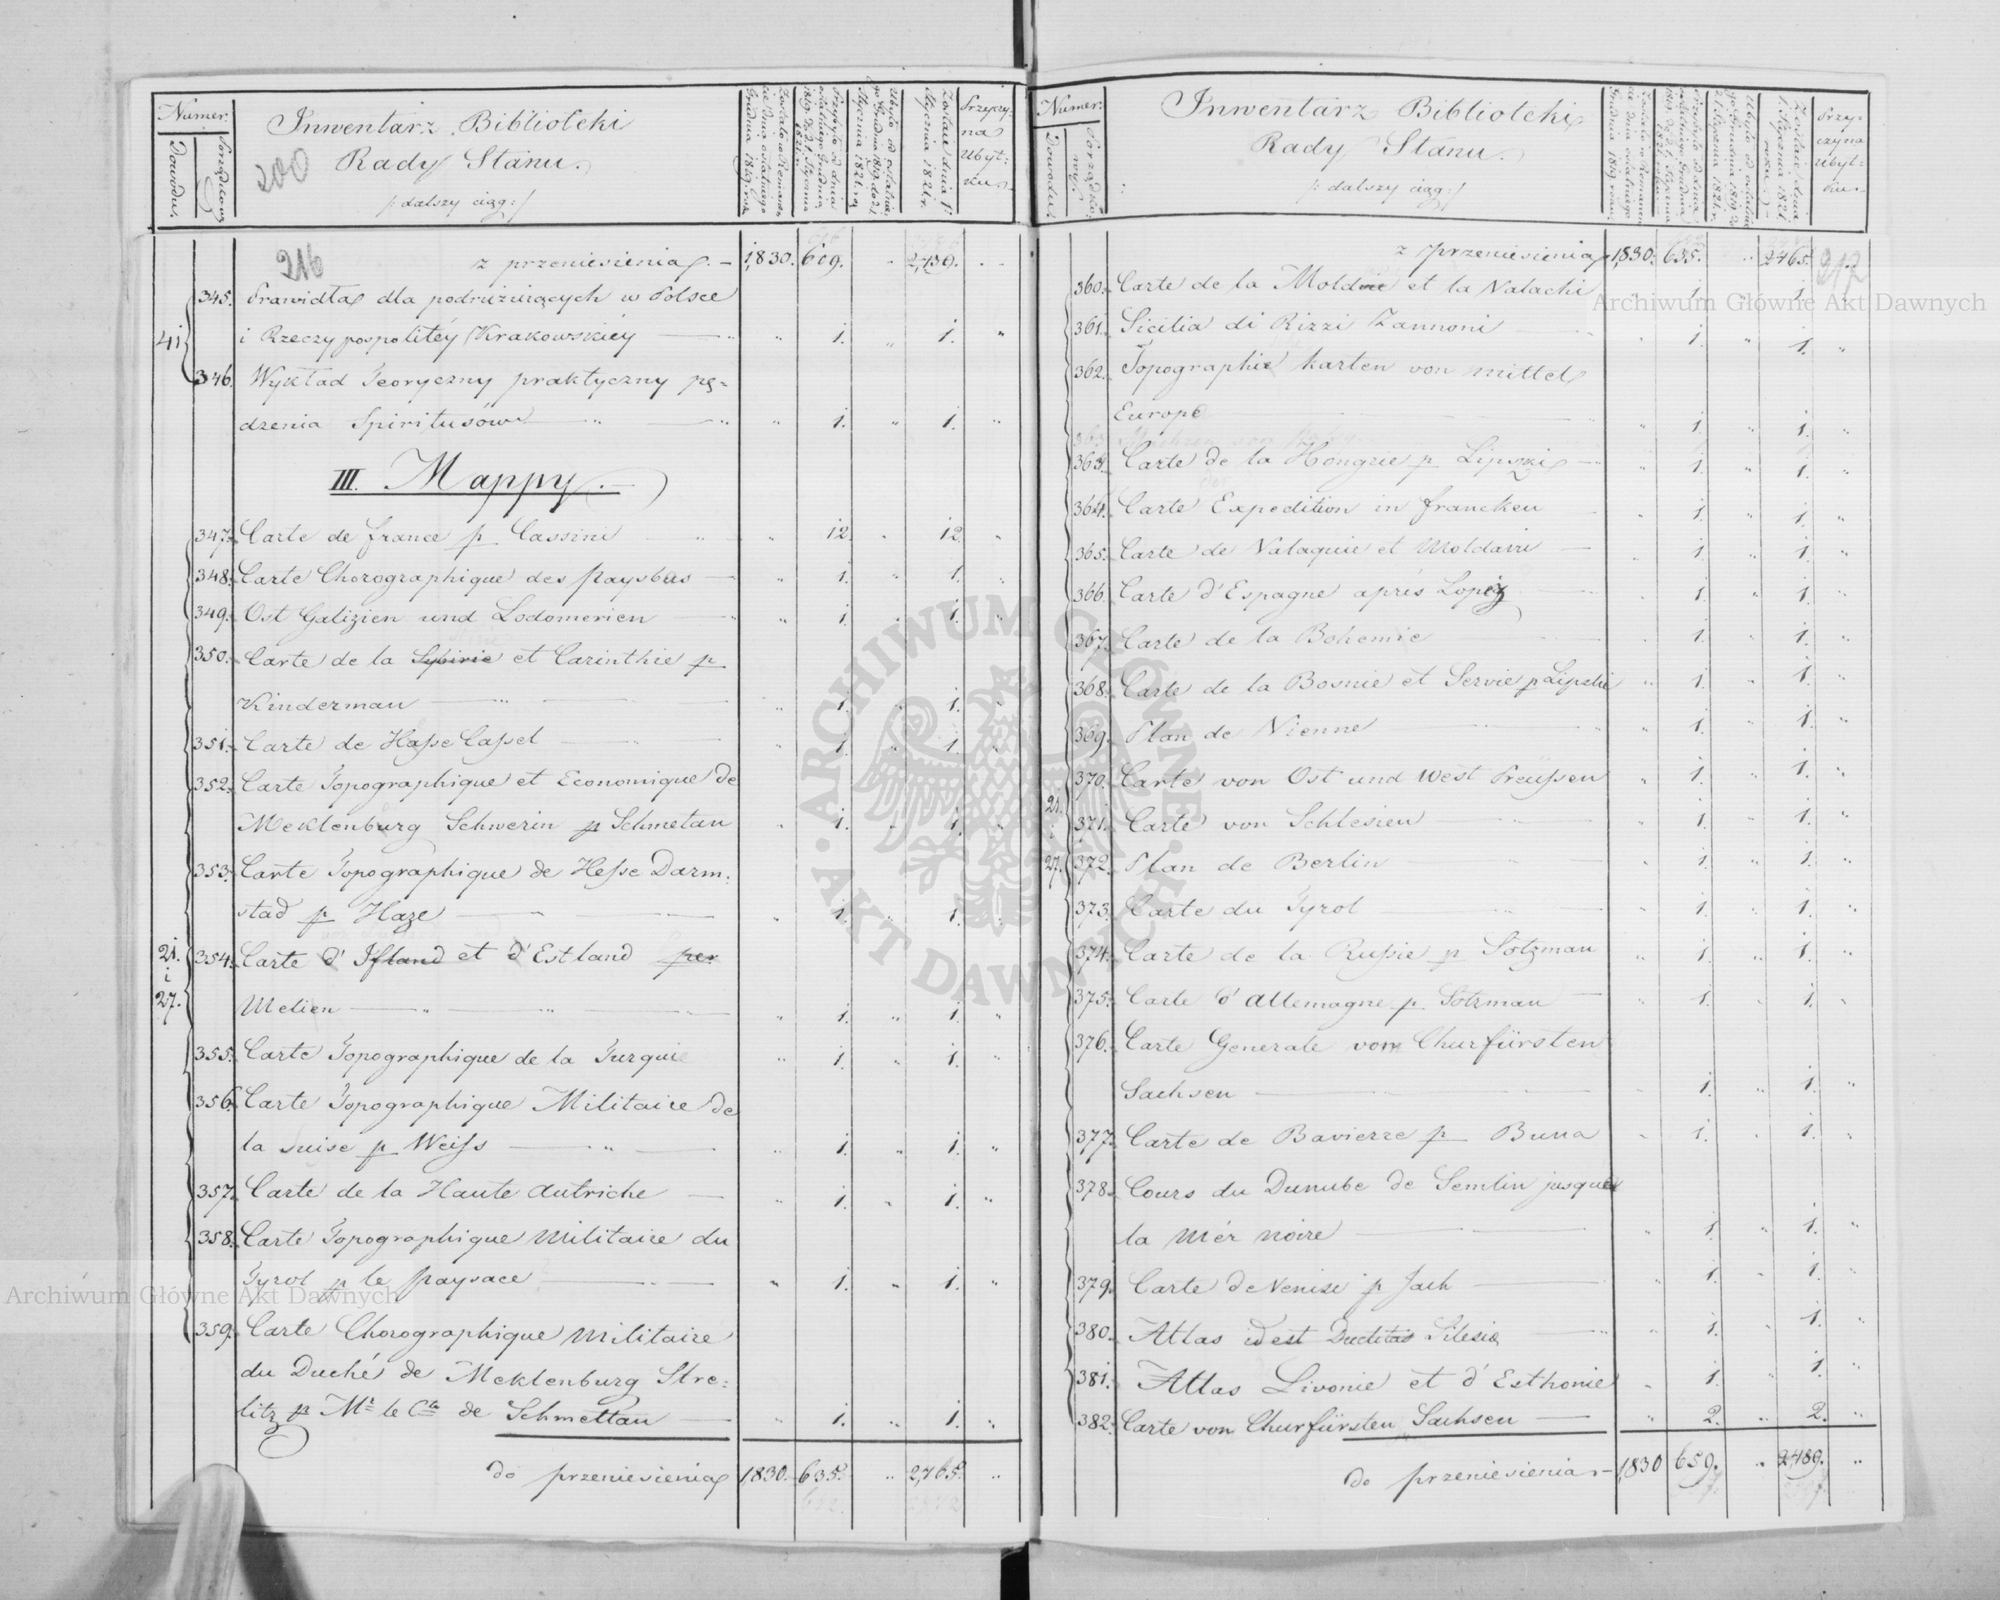 Numer.
Dowodu.
Porządkowy
Inwentarz Biblioteki
200
Rady Stanu.
/: dalszy ciąg :/
Zostało w Remanen
cie dnia ostatniego
Grudnia 1819 roku
Przybyło od dnia
ostatniego Grudnia
1819 do d. 1 Stycznia
1821 r.
Ubyło od ostatnie
go Grudnia 1819 do d. 1
Stycznia 1821 r.
Zostaie dnia 1o
Stycznia 1821 r.
Przyczy-
na
Ubyt:
ku.
216
z przeniesienia — 1,830. 609. " 2,439.
41
345. Prawidła dla podróżuiących w Polsce
i Rzeczypospolitéy Krakowskiéy — " 1. " 1. "
346. Wykład Teoryczny praktyczny pę-
dzenia Spiritusów — " 1. " 1. "
III. Mappy.
21.
i
27.
347. Carte de france p Cassini " 12. " 12. "
348. Carte Chorographique des paysbas — " 1. " 1. "
349. Ost Galizien und Lodomerien — " 1. " 1. "
350. Carte de la Syririe et Carinthie p
Kinderman — " 1. " 1. "
351. Carte de Hasse Cassel — " 1. " 1. "
352. Carte Topographique et Economique de
Meklenburg Schwerin p Schmetau " 1. " 1. "
353. Carte Topographique de Hesse Darm:
stad p Haze — " 1. " 1. "
354. Carte d' Ifland et d'Estland per
Melien — " 1. " 1. "
355. Carte Topographique de la Turquie " 1. " 1. "
356. Carte Topographique Militaire de
la suise p Weiss — " 1. " 1. "
357. Carte de la Haute Autriche — " 1. " 1. "
358. Carte Topographique Militaire du
Tyrol p le paysace — " 1. " 1. "
359. Carte Chorographique Militaire
du Duché de Meklenburg Stre:
litz p Mr le Cte de Schmettau — " 1. " 1. "
do przeniesienia 1,830. 635. " 2,465. "
Numer.
Dowodu.
Porządko-
wy.
Inwentarz Biblioteki
Rady Stanu.
/: dalszy ciąg :/
Przy-
czyna
Ubyt-
ku.
z przeniesienia 1,830. 635. " 2465.
217
21.
i
27.
360. Carte de la Moldvie et la Valachi " 1. " 1. "
361. Sicilia di Rizzi Zannoni " 1. " 1. "
362. Topographie karten von mittel
Europe " 1. " 1. "
363. Carte de la Hongrie p Lipszki — " 1. " 1. "
364. Carte Expedition in francken " 1. " 1. "
365. Carte de Valaquie et Moldavie — " 1. " 1. "
366. Carte d'Espagne après Lopez " 1. " 1. "
367. Carte de la Bohemie " 1. " 1. "
368. Carte de la Bosnie et Servie p Lipszki " 1. " 1. "
369. Plan de Vienne " 1. " 1. "
370. Carte von Ost und West Preüssen " 1. " 1. "
371. Carte von Schlesien " 1. " 1. "
372. Plan de Berlin " 1. " 1. "
373. Carte du Tyrol " 1. " 1. "
374. Carte de la Russie p Sotzman " 1. " 1. "
375. Carte d'Allemagne p Sotzman — " 1. " 1. "
376. Carte Generale vom Churfürsten
Sachsen — " 1. " 1. "
377. Carte de Bavierre p Buna " 1. " 1. "
378. Cours du Dunube de Semlin jusque
la Mér Noire — " 1. " 1. "
379. Carte de Venise p Jach — " 1. " 1. "
380. Atlas id est Duclitas Silesie " 1. " 1. "
381. Atlas Livonie et d'Esthonie " 1. " 1. "
382. Carte von Churfürsten Sachsen — " 2. " 2. "
do przeniesienia — 1,830 659. " 2489. "
Archiwum Główne Akt Dawnych
Archiwum Główne Akt Dawnych
ARCHIWUM GŁÓWNE AKT DAWNYCH